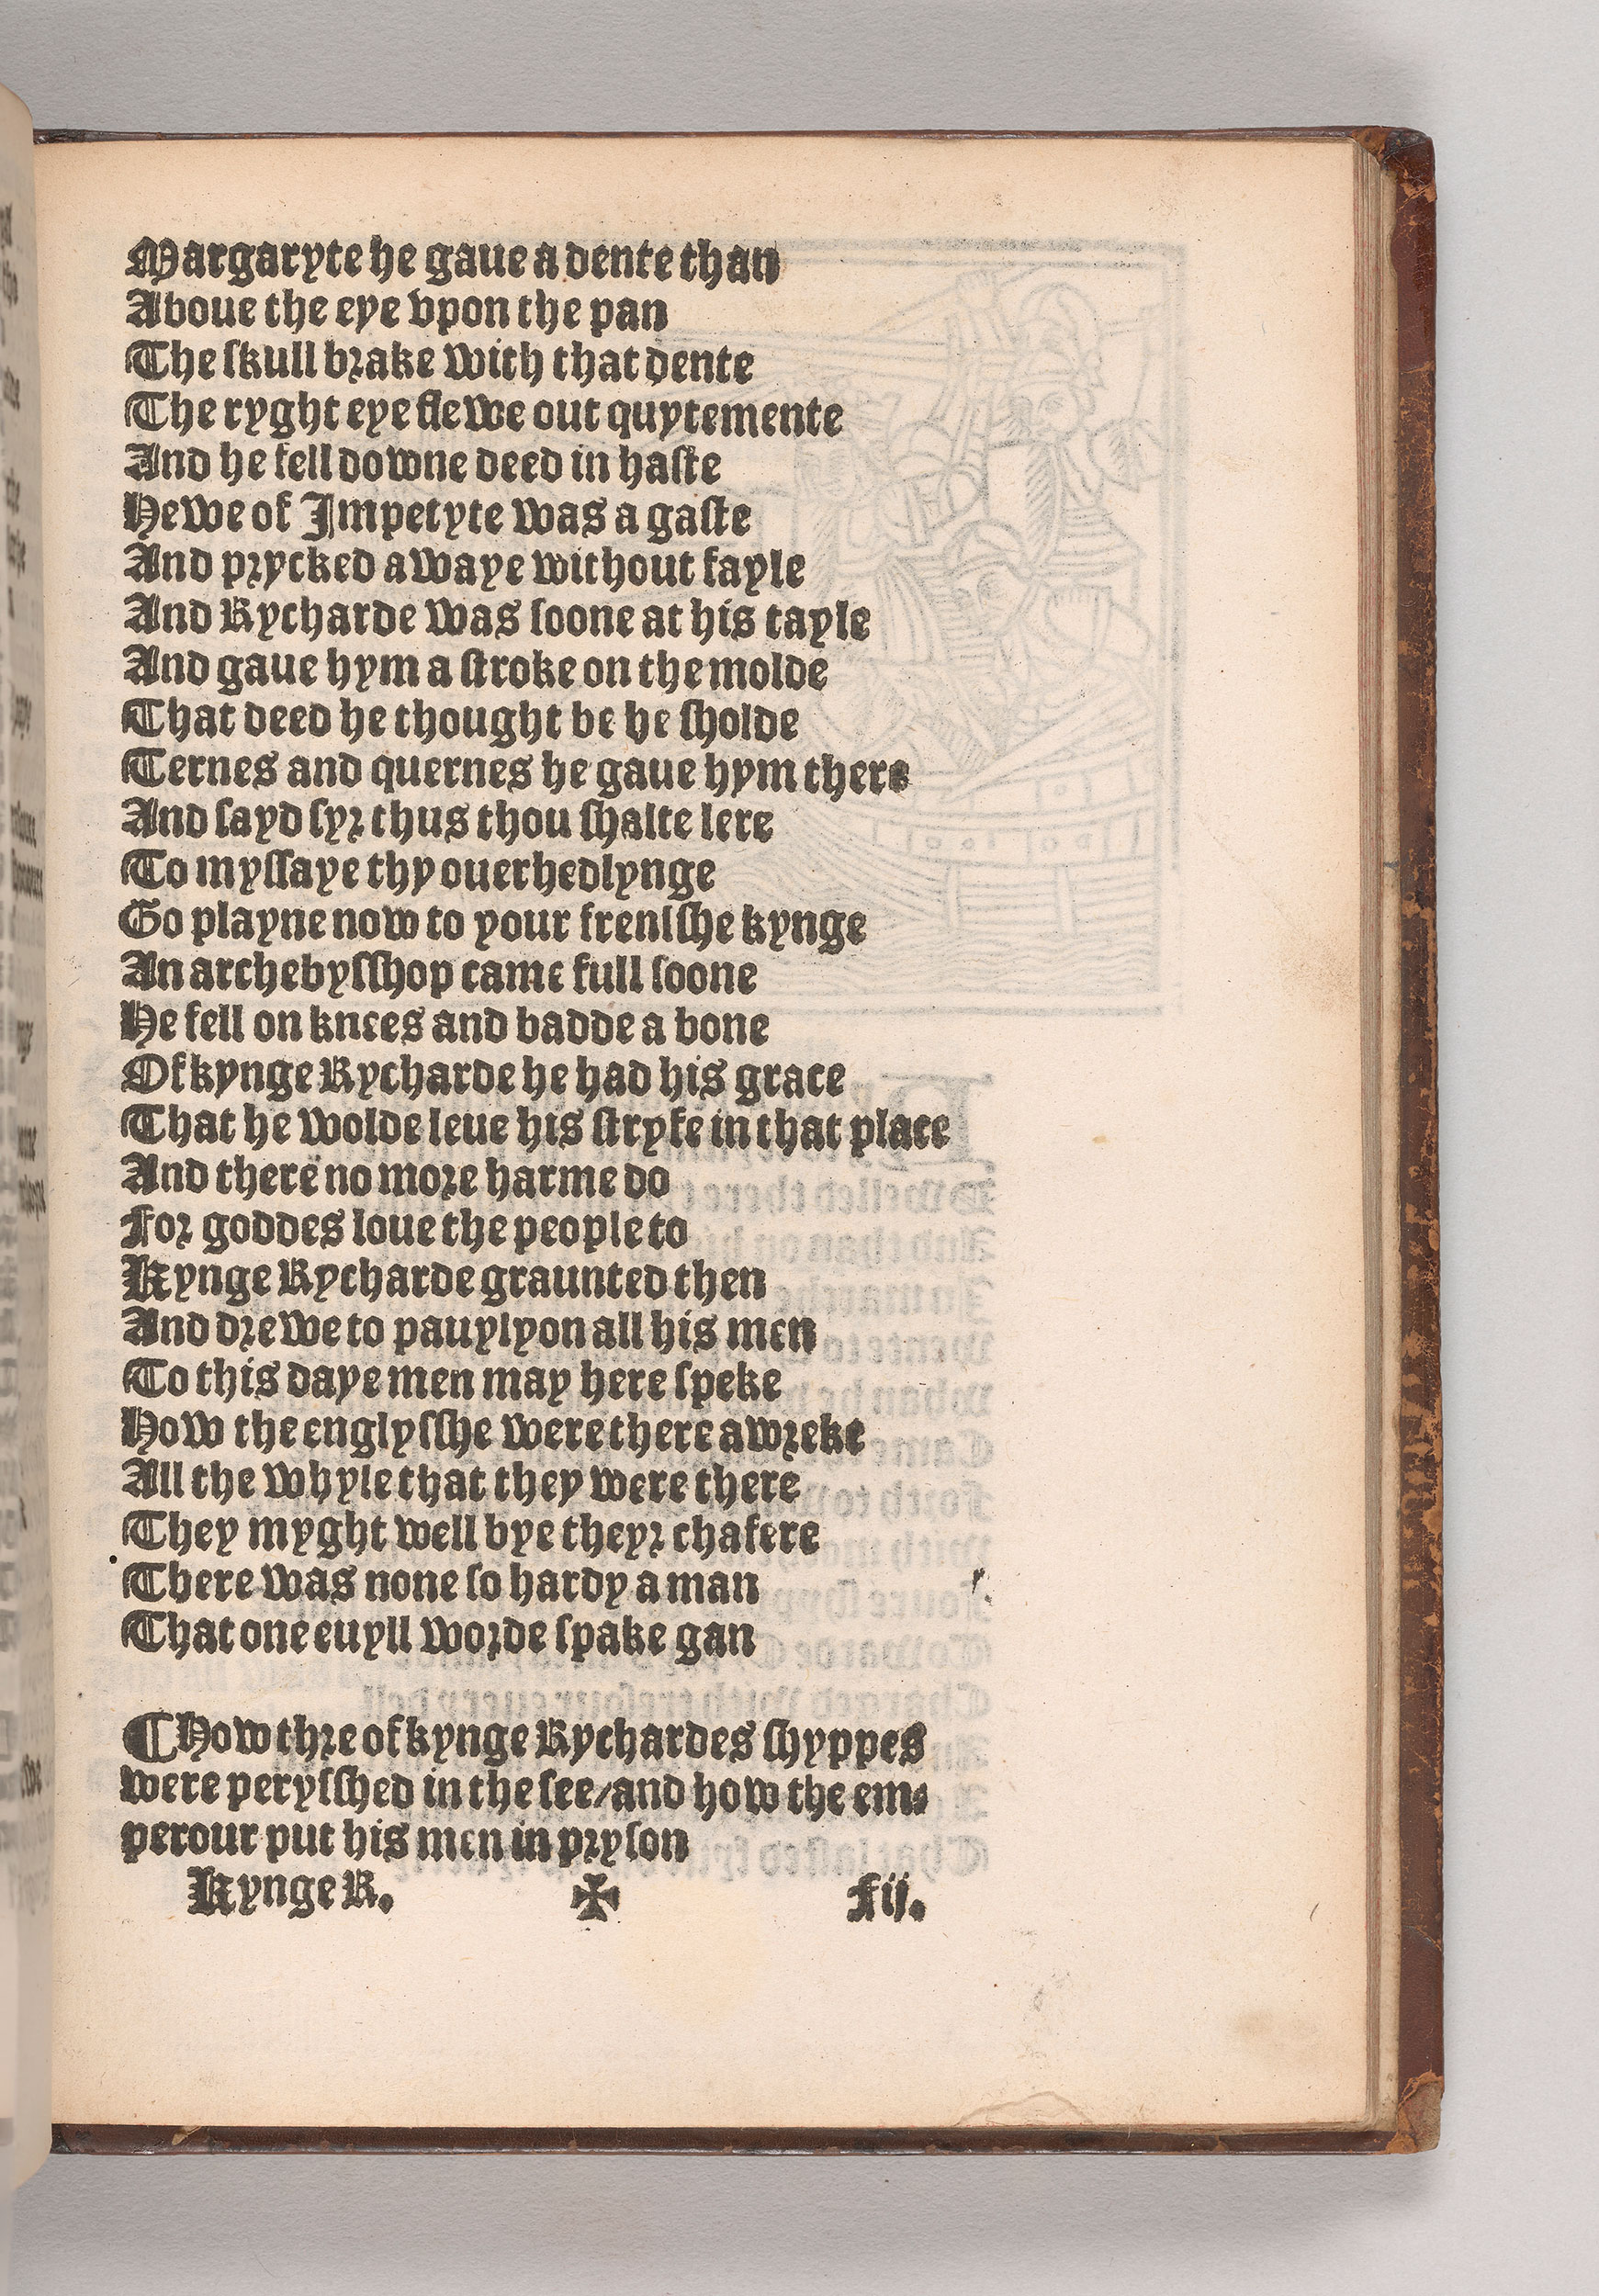 Margaryte he gaue a dente than
Aboue the eye vpon the pan
The ſkull brake with that dente
The ryght eye flewe out quytemente
And he fell downe deed in haſte
Hewe of Impetyte was a gaſte
And prycked awaye without fayle
And Rycharde was ſoone at his tayle
And gaue hym a ſtroke on the molde
That deed he thought be he ſholde
Ternes and quernes he gaue hym there
And ſayd ſyr thus thou ſhalte lere
To myſſaye thy ouerhedlynge
Go playne now to your frenſſhe kynge
An archebyſſhop came full ſoone
He fell on knees and badde a bone
Of kynge Rycharde he had his grace
That he wolde leue his ſtryfe in that place
And there no more harme do
For goddes loue the people to
Kynge Rycharde graunted then
And drewe to pauylyon all his men
To this daye men may here ſpeke
How the englyſſhe were there awreke
All the whyle that they were there
They myght well bye theyr chafere
There was none ſo hardy a man
That one euyll worde ſpake gan
¶ How thre of kynge Rychardes ſhyppes
were peryſſhed in the ſee/and how the em⸗
perour put his men in pryſon
Kynge R. ✠ F ij.